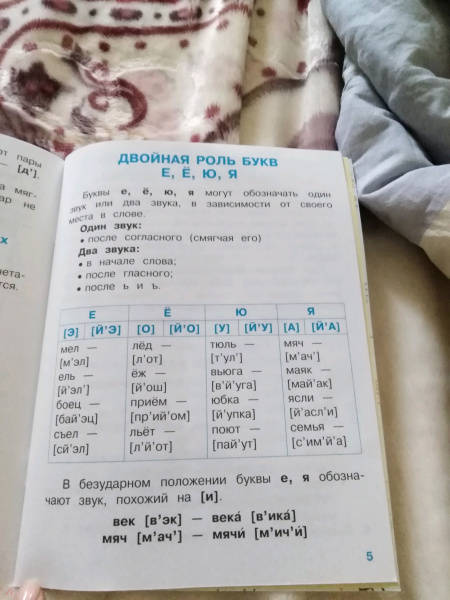 от пары
— [д'].
а мяг-
ар не
х
нета-
тся.
ДВОЙНАЯ РОЛЬ БУКВ
Е, Ё, Ю, Я
Буквы е, ё, ю, я могут обозначать один
звук или два звука, в зависимости от своего
места в слове.
Один звук:
• после согласного (смягчая его)
Два звука:
• в начале слова;
• после гласного;
• после ъ и ь.
Е Ё Ю Я
[Э] [Й'Э] [О] [Й'О] [У] [Й'У] [А] [Й'А]
мел — лёд — тюль — мяч —
[м'эл] [л'от] [т'ул'] [м'ач']
ель — ёж — вьюга — маяк —
[й'эл'] [й'ош] [в'й'уга] [май'ак]
боец — приём — юбка — ясли —
[бай'эц] [пр'ий'ом] [й'упка] [й'асл'и]
съел — льёт — поют — семья —
[сй'эл] [л'й'от] [пай'ут] [с'им'й'а]
В безударном положении буквы е, я обозна-
чают звук, похожий на [и].
век [в'эк] — векá [в'икá]
мяч [м'ач'] — мячи́ [м'ич'и́]
5